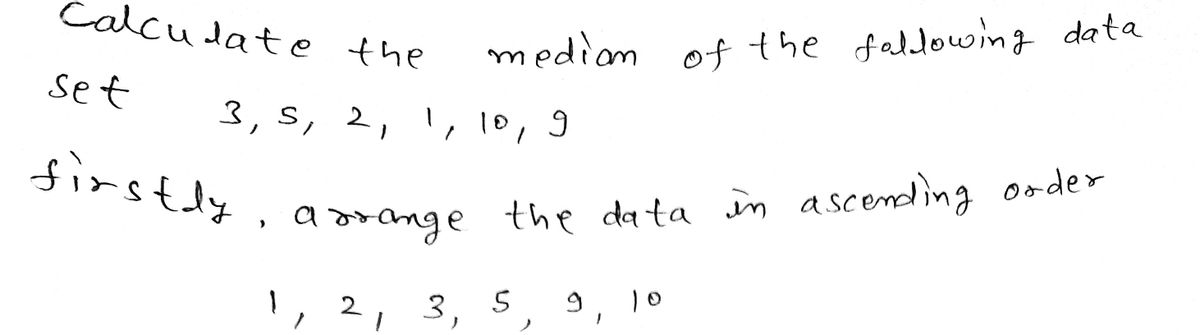 Calculate the median of the following data
set 3, 5, 2, 1, 10, 9
firstly, arrange the data in ascending order
1, 2, 3, 5, 9, 10